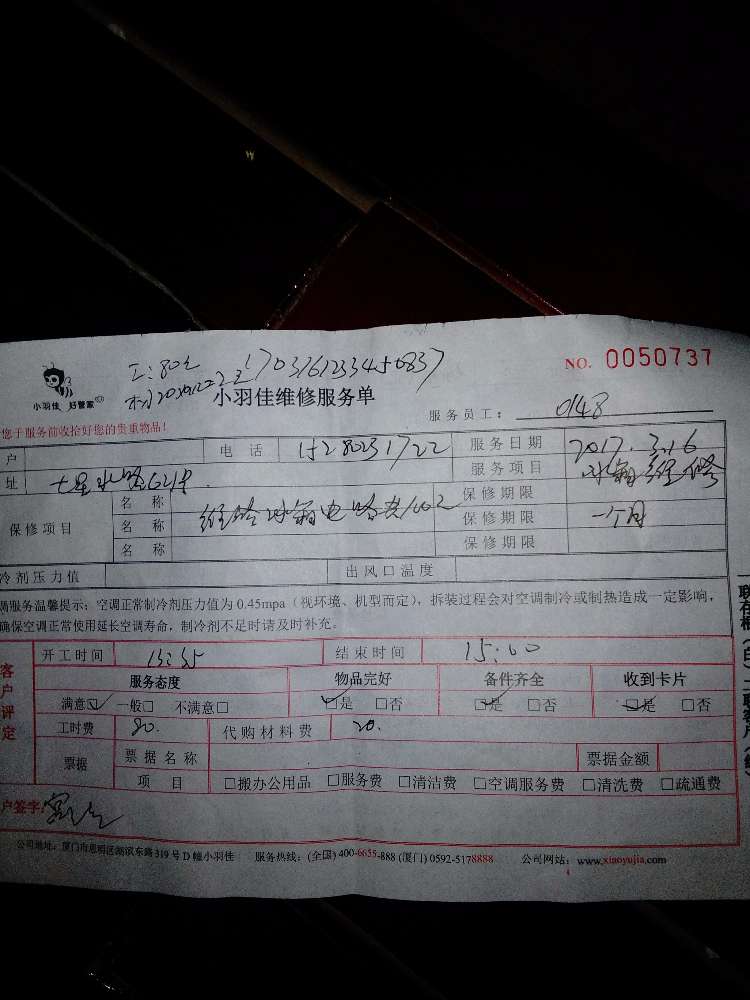 工:80元 1703161233456837
NO. 0050737
小羽佳 好管家
小羽佳维修服务单
服务员工: 0148
您于服务前收拾好您的贵重物品!
户 电 话 服务日期 2017.3.16
址 服务项目 冰箱维修
保修项目 名 称 保修期限
名 称 保修期限 一个月
名 称 保修期限
冷剂压力值 出风口温度
调服务温馨提示:空调正常制冷剂压力值为0.45mpa(视环境、机型而定),拆装过程会对空调制冷或制热造成一定影响,
确保空调正常使用延长空调寿命,制冷剂不足时请及时补充。
客户评定
开工时间 结束时间 15:00
服务态度 物品完好 备件齐全 收到卡片
满意☑ 一般□ 不满意□ ☑是 □否 ☑是 □否 ☑是 □否
工时费 80. 代购材料费 20.
票据 票据名称 票据金额
项 目 □搬办公用品 □服务费 □清洁费 □空调服务费 □清洗费 □疏通费
户签字:
公司地址:厦门市思明区湖滨东路319号D幢小羽佳 服务热线:(全国)400-6655-888 (厦门)0592-5178888 公司网站:www.xiaoyujia.com